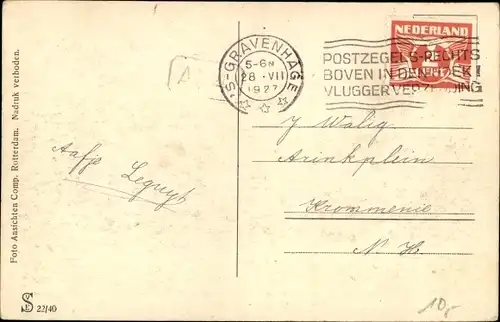 NEDERLAND
'S-GRAVENHAGE
5-6N
28 ·VII
1927
POSTZEGELS-RECHTS
BOVEN IN DEN HOEK!
VLUGGER VERZENDING
J Walig
Arinkplein
Krommenie
N. H.
Aafje
Foto Ansichten Comp. Rotterdam. Nadruk verboden.
S 22/40
10,-